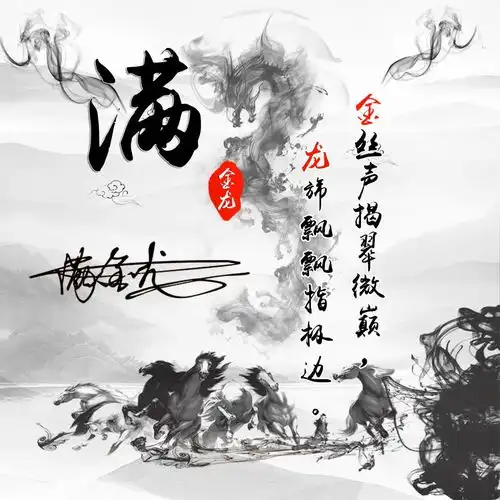 满
金龙
金丝声揭翠微巅，
龙旆飘飘指极边。
满金龙